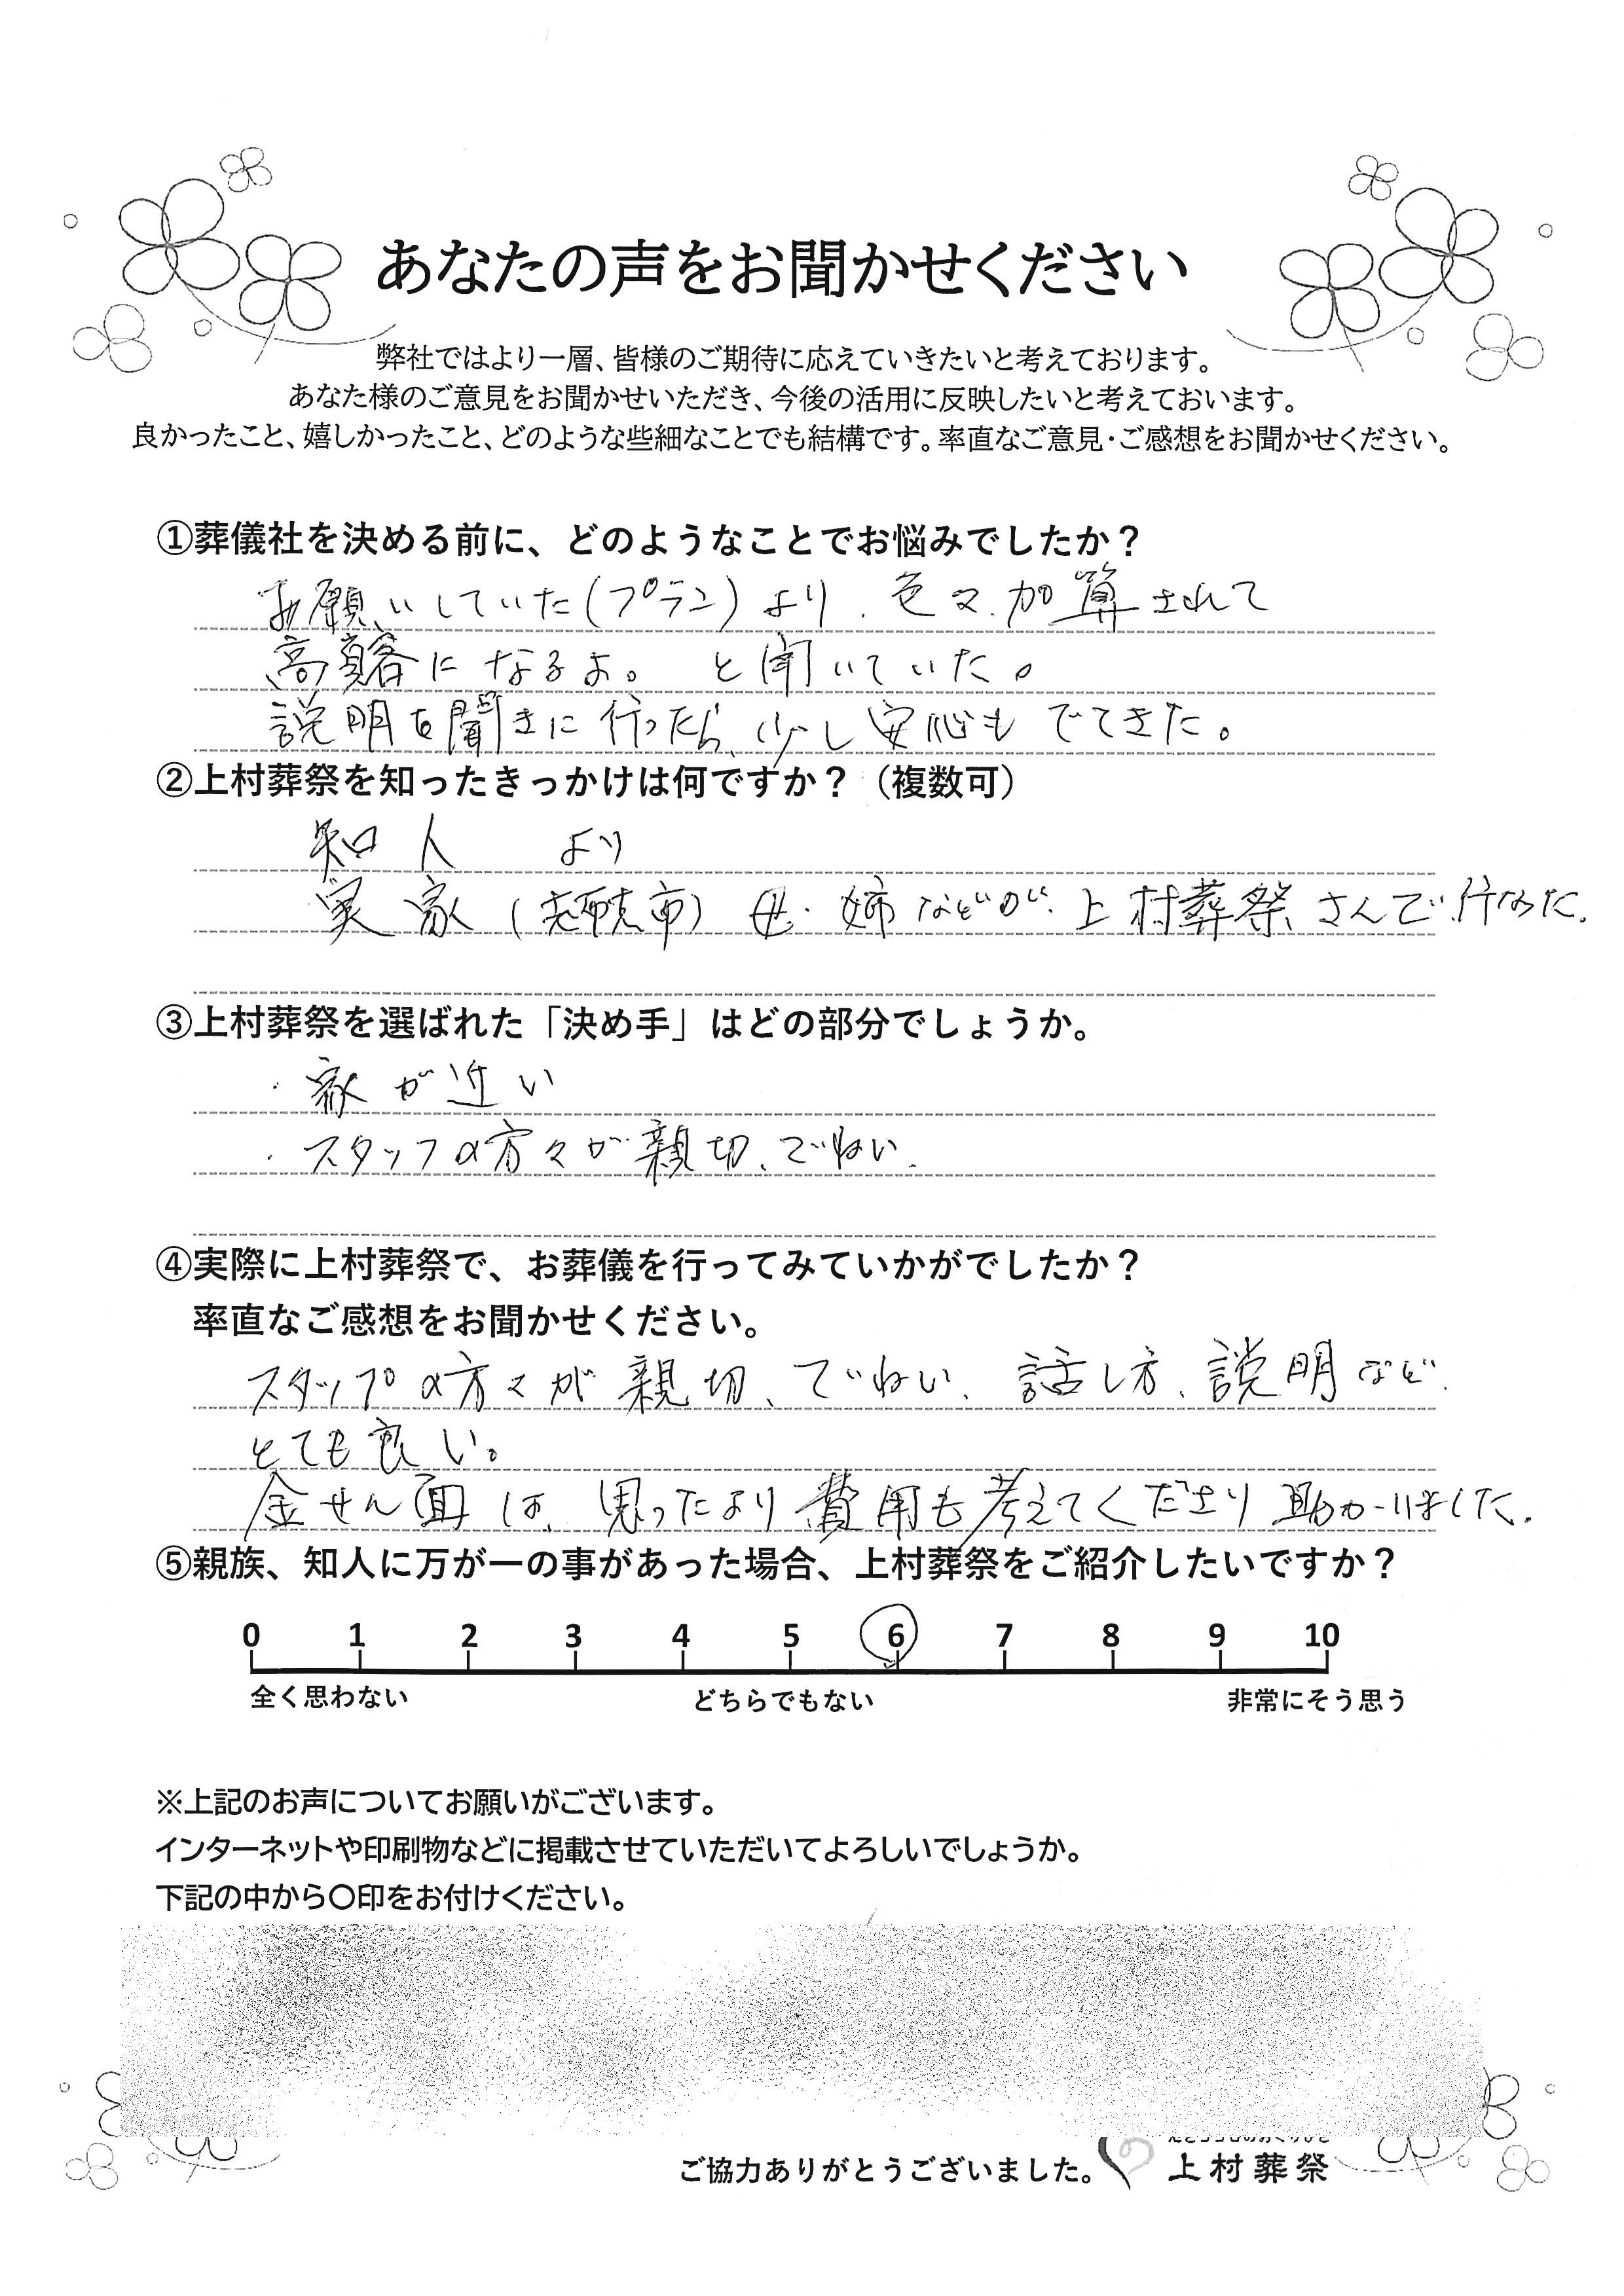 あなたの声をお聞かせください
弊社ではより一層、皆様のご期待に応えていきたいと考えております。
あなた様のご意見をお聞かせいただき、今後の活用に反映したいと考えておいます。
良かったこと、嬉しかったこと、どのような些細なことでも結構です。率直なご意見・ご感想をお聞かせください。
①葬儀社を決める前に、どのようなことでお悩みでしたか？
お願いしていた(プラン)より、色々、加算されて
高額になるよ。と聞いていた。
説明を聞きに行ったら、少し安心もでてきた。
②上村葬祭を知ったきっかけは何ですか？（複数可）
知人 より
実家( 市) 母・姉などが、上村葬祭さんで行なった。
③上村葬祭を選ばれた「決め手」はどの部分でしょうか。
・家が近い
・スタッフの方々が親切、ていねい。
④実際に上村葬祭で、お葬儀を行ってみていかがでしたか？
率直なご感想をお聞かせください。
スタップの方々が親切、ていねい、話し方、説明など、
とても良い。
金せん面は、思ったより費用も考えてくださり助かりました。
⑤親族、知人に万が一の事があった場合、上村葬祭をご紹介したいですか？
0 1 2 3 4 5 6 7 8 9 10
全く思わない どちらでもない 非常にそう思う
※上記のお声についてお願いがございます。
インターネットや印刷物などに掲載させていただいてよろしいでしょうか。
下記の中から〇印をお付けください。
ご協力ありがとうございました。 上村葬祭